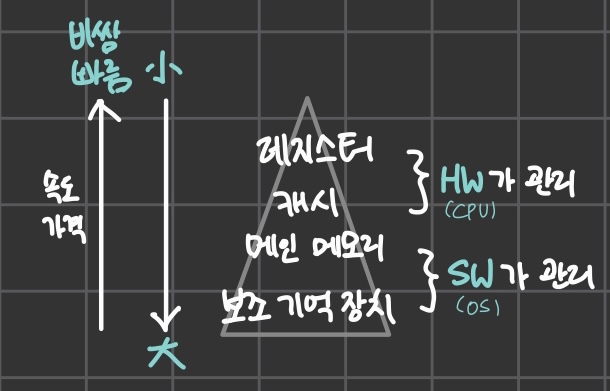 비쌈
빠름 小
속도
가격
大
레지스터
캐시
메인 메모리
보조 기억 장치
HW가 관리
(CPU)
SW가 관리
(OS)